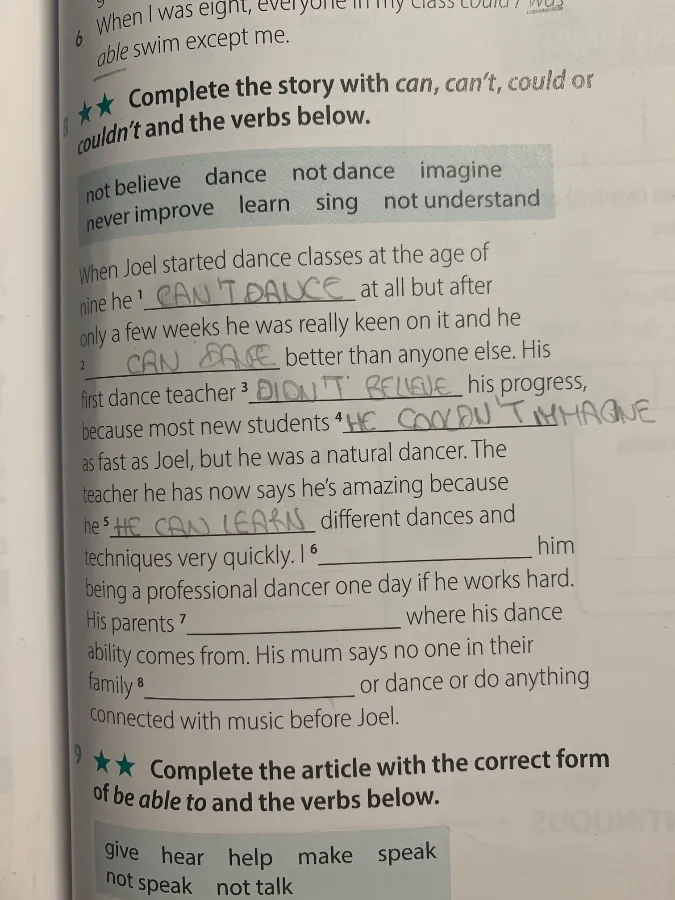 6 When I was eight, everyone in my class could / was
able swim except me.
8 ★★ Complete the story with can, can't, could or
couldn't and the verbs below.
not believe dance not dance imagine
never improve learn sing not understand
When Joel started dance classes at the age of
nine he 1 CAN'T DANCE at all but after
only a few weeks he was really keen on it and he
2 CAN DANCE better than anyone else. His
first dance teacher 3 DIDN'T BELIEVE his progress,
because most new students 4 HE COULDN'T
as fast as Joel, but he was a natural dancer. The
teacher he has now says he's amazing because
he 5 HE CAN LEARN different dances and
techniques very quickly. I 6 him
being a professional dancer one day if he works hard.
His parents 7 where his dance
ability comes from. His mum says no one in their
family 8 or dance or do anything
connected with music before Joel.
9 ★★ Complete the article with the correct form
of be able to and the verbs below.
give hear help make speak
not speak not talk